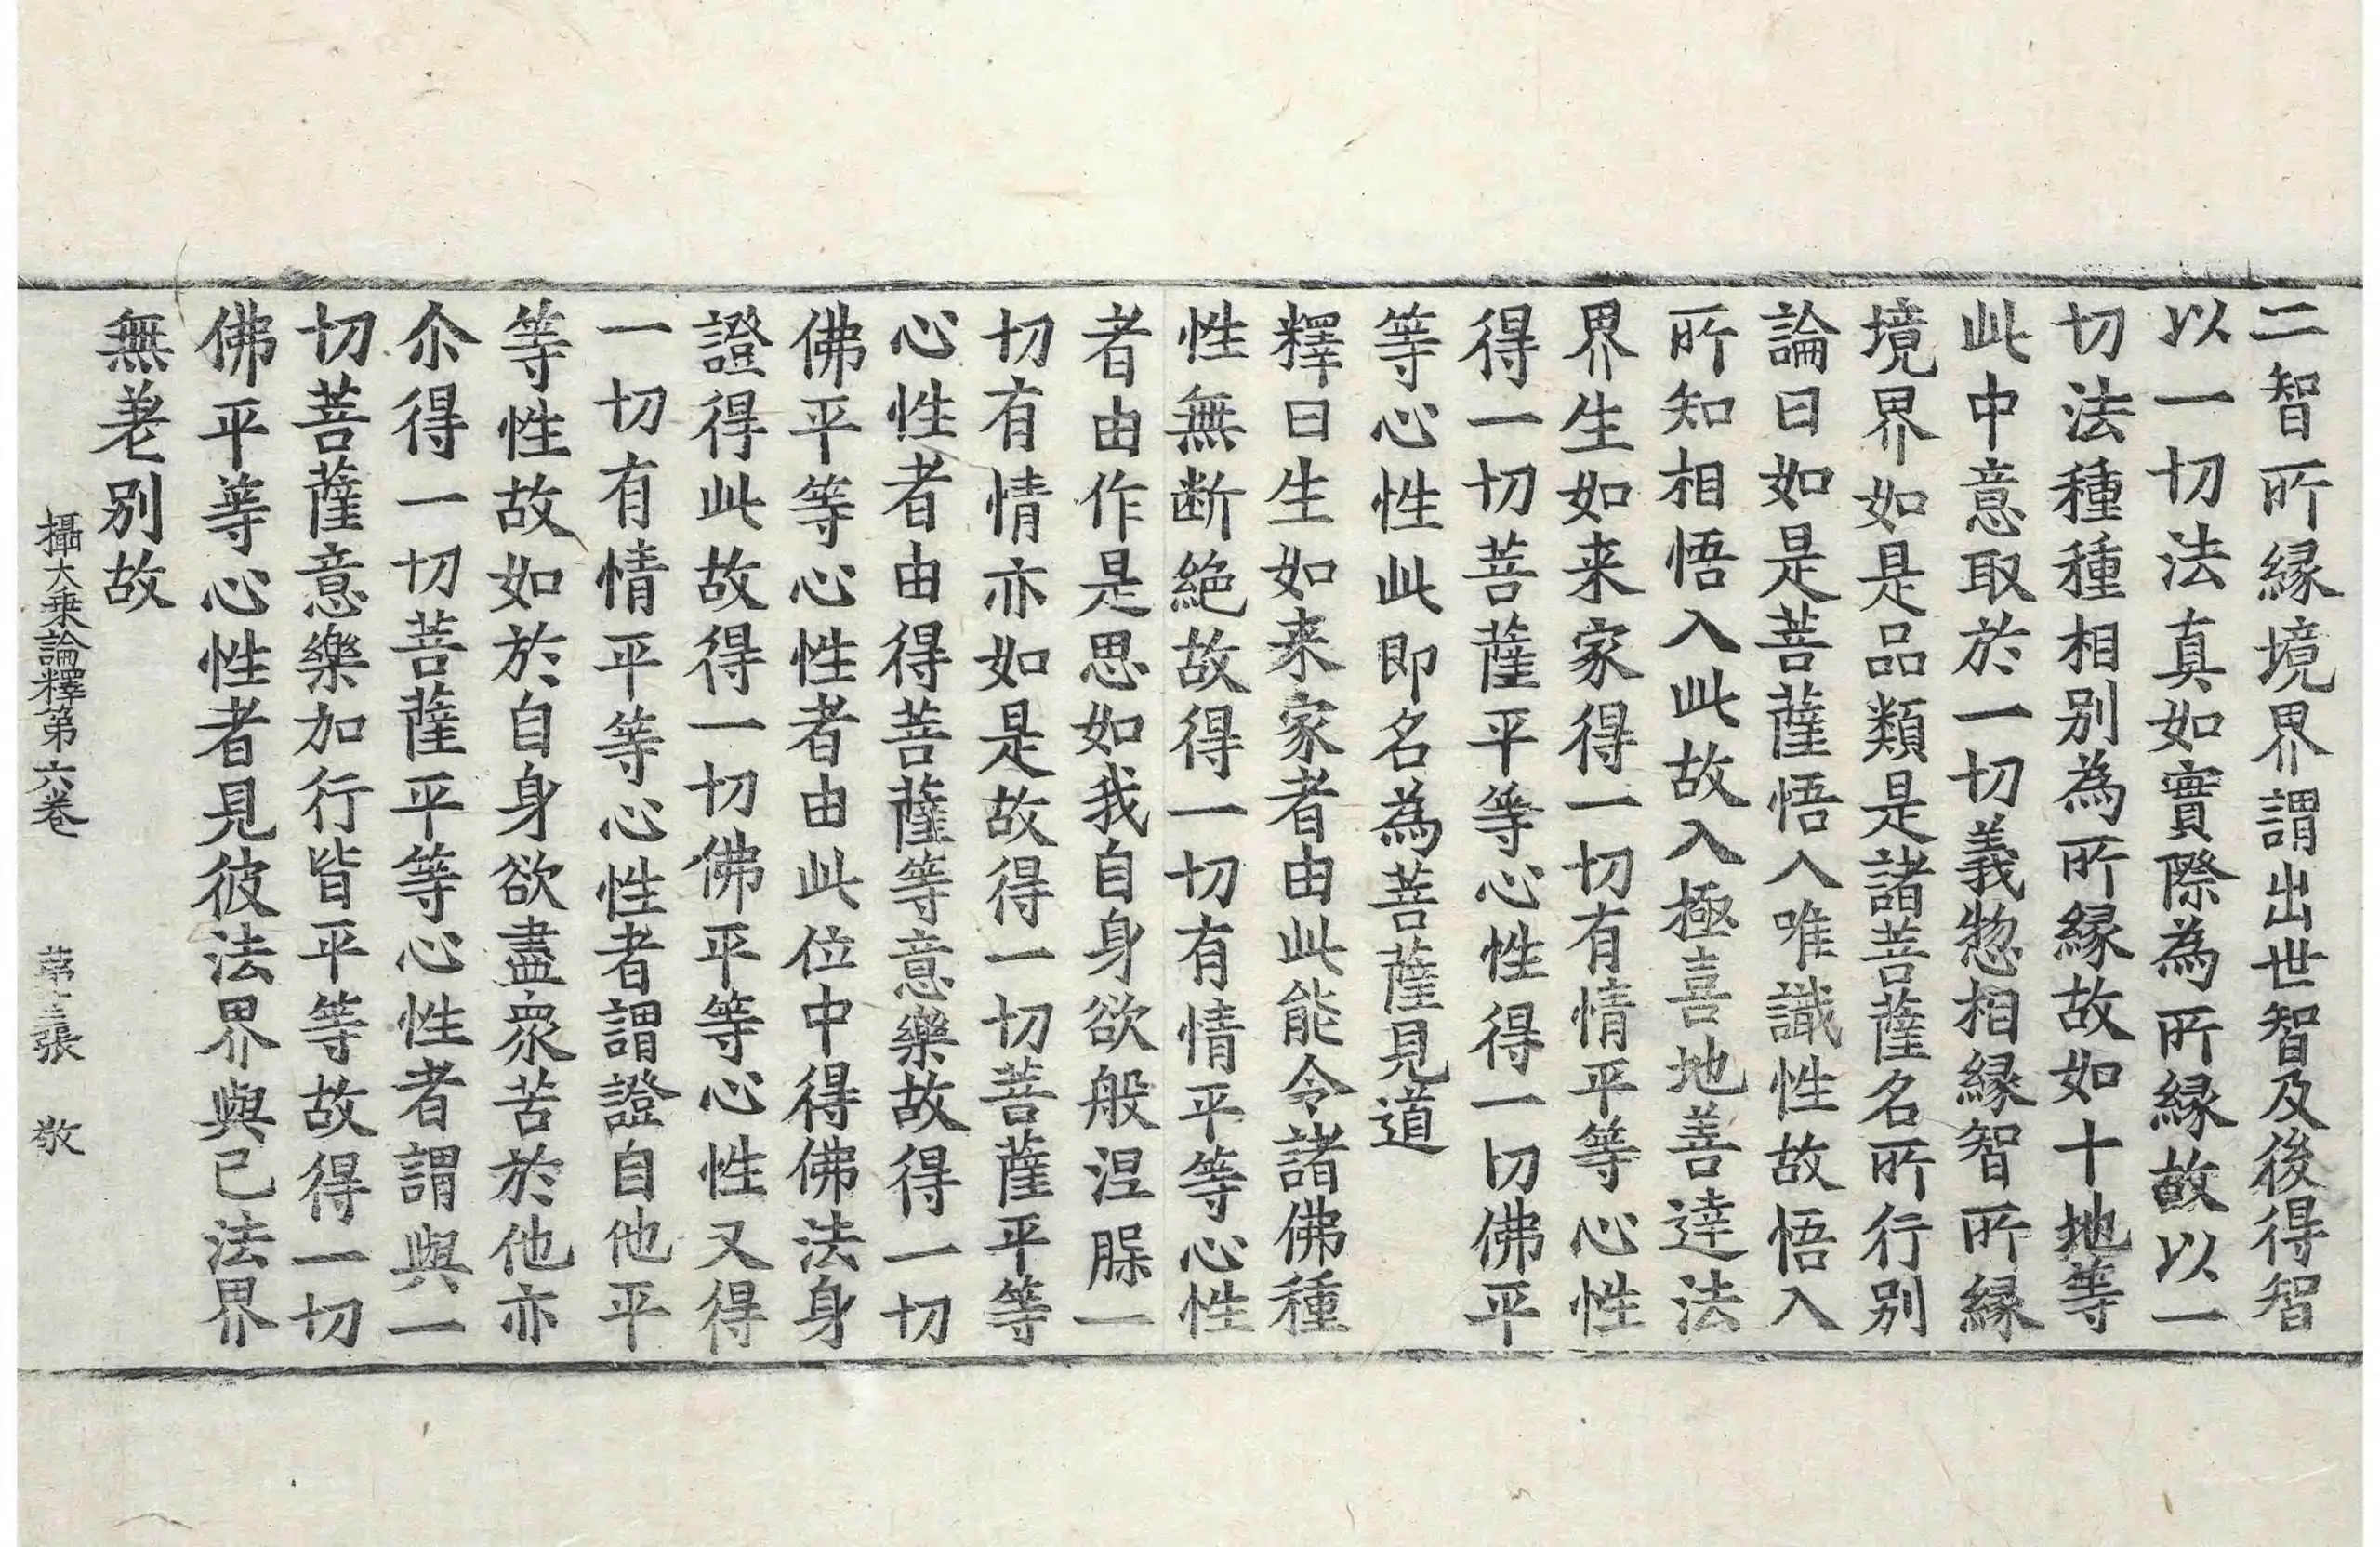 二智所縁境界謂出世智及後得智
以一切法真如實際為所縁故以一
切法種種相别為所縁故如十地等
此中意取於一切義惣相縁智所縁
境界如是品類是諸菩薩名所行别
論曰如是菩薩悟入唯識性故悟入
所知相悟入此故入極喜地善達法
界生如来家得一切有情平等心性
得一切菩薩平等心性得一切佛平
等心性此即名為菩薩見道
釋曰生如来家者由此能令諸佛種
性無断絶故得一切有情平等心性
者由作是思如我自身欲般涅槃一
切有情亦如是故得一切菩薩平等
心性者由得菩薩等意樂故得一切
佛平等心性者由此位中得佛法身
證得此故得一切佛平等心性又得
一切有情平等心性者謂證自他平
等性故如於自身欲盡衆苦於他亦
尒得一切菩薩平等心性者謂與一
切菩薩意樂加行皆平等故得一切
佛平等心性者見彼法界與己法界
無差别故
攝大乗論釋第六巻 第 張 敬